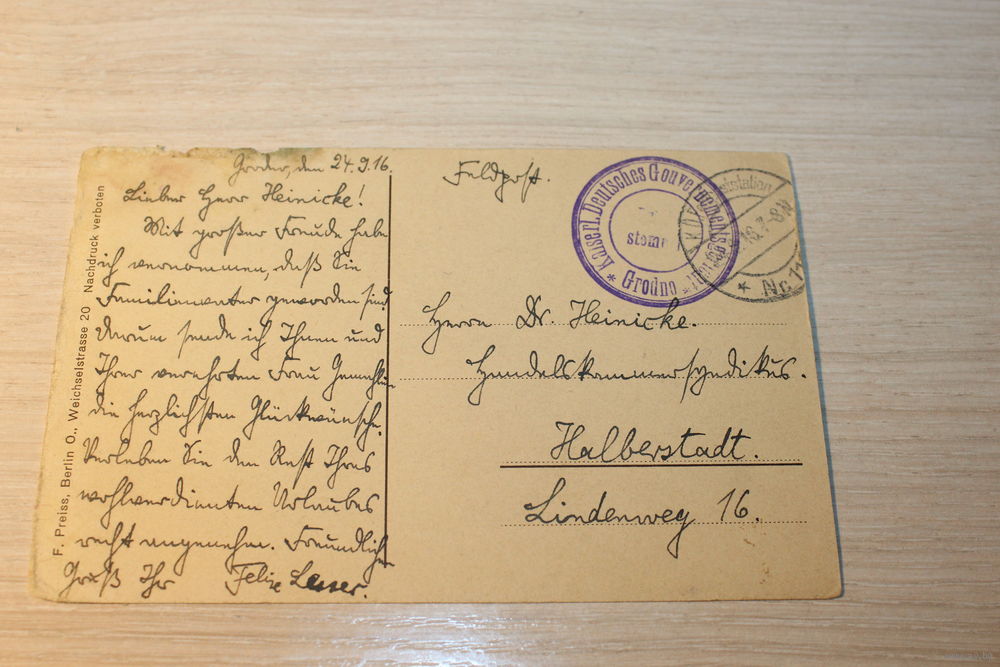 Grodno, den 24.9.16.
Lieber Herr Heinicke!
Mit großer Freude habe
ich vernommen, daß Sie
Familienvater geworden sind.
Darum sende ich Ihnen und
Ihrer verehrten Frau Gemahlin
die herzlichsten Glückwünsche.
Verleben Sie den Rest Ihres
wohlverdienten Urlaubes
recht angenehm. Freundlichen
Gruß Ihr Felix Lesser.
F. Preiss, Berlin O., Weichselstrasse 20 Nachdruck verboten
Feldpost.
Kaiserl. Deutsches Gouvernements
Grodno
Nr. 11
Herrn Dr. Heinicke.
Handelskammersyndikus.
Halberstadt.
Lindenweg 16.